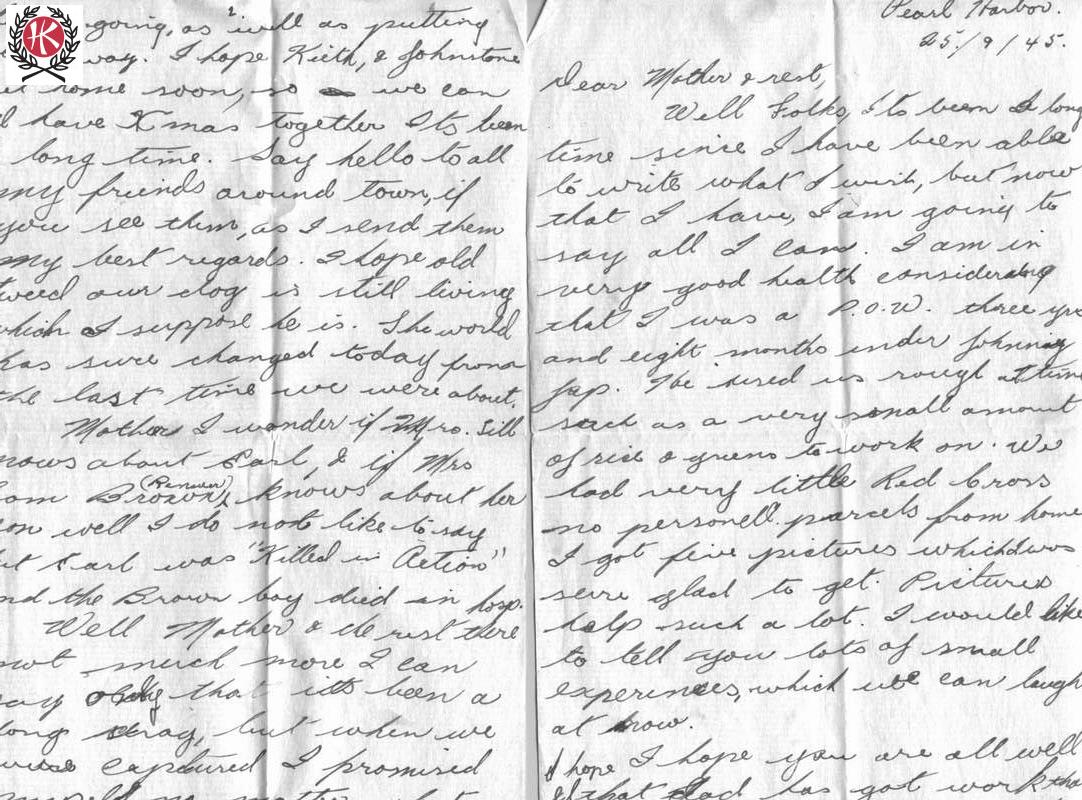 HK
going, as well as putting
way. I hope Kieth, & Johnstone
home soon, so we can
have Xmas together Its been
long time. Say hello to all
my friends around town, if
you see them, as I send them
my best regards. I hope old
tweed our dog is still living
which I suppose he is. The world
has sure changed today from
the last time we were about.
Mother I wonder if Mrs. Sill
nows about Earl, & if Mrs
am Brown, (Penman) knows about her
on well I do not like to say
ut Earl was "Killed in Action"
nd the Brown boy died in hosp.
Well Mother & the rest there
not much more I can
ay only that its been a
long stray, but when we
were captured I promised
Pearl Harbor.
25/9/45.
Dear Mother & rest,
Well Folks, Its been a long
time since I have been able
to write what I wish, but now
that I have, I am going to
say all I can. I am in
very good health considering
that I was a P.O.W. three yrs
and eight months under Johnny
Jap. He used us rough at time
such as a very small amount
of rice & greens to work on. We
had very little Red Cross
no personell parcels from home
I got five pictures which I was
sure glad to get. Pictures
help such a lot. I would like
to tell you lots of small
experinces, which we can laugh
at now.
I hope I hope you are all well
& that Dad has got work tha